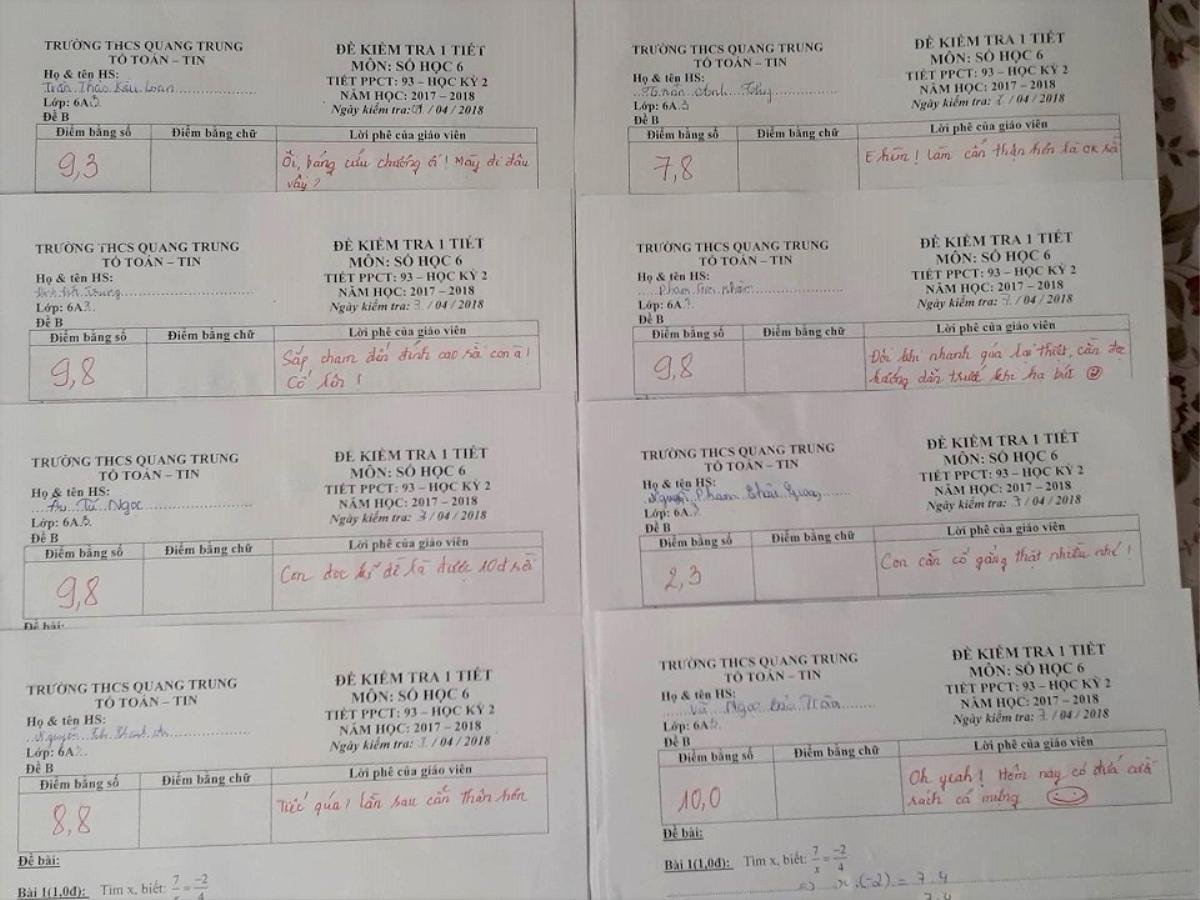 TRƯỜNG THCS QUANG TRUNG
TỔ TOÁN – TIN
Họ & tên HS:
Trần Thảo Kiều Loan
Lớp: 6A3
Đề B
ĐỀ KIỂM TRA 1 TIẾT
MÔN: SỐ HỌC 6
TIẾT PPCT: 93 – HỌC KỲ 2
NĂM HỌC: 2017 – 2018
Ngày kiểm tra: / 04 / 2018
Điểm bằng số Điểm bằng chữ Lời phê của giáo viên
9,3
Ôi, bảng cửu chương ơi! Mày đi đâu
vậy?
TRƯỜNG THCS QUANG TRUNG
TỔ TOÁN – TIN
Họ & tên HS:
Anh Thy
Lớp: 6A3
Đề B
ĐỀ KIỂM TRA 1 TIẾT
MÔN: SỐ HỌC 6
TIẾT PPCT: 93 – HỌC KỲ 2
NĂM HỌC: 2017 – 2018
Ngày kiểm tra: 7 / 04 / 2018
Điểm bằng số Điểm bằng chữ Lời phê của giáo viên
7,8
E hèm! Làm cẩn thận hơn là OK rồi
TRƯỜNG THCS QUANG TRUNG
TỔ TOÁN – TIN
Họ & tên HS:
Trung
Lớp: 6A3
Đề B
ĐỀ KIỂM TRA 1 TIẾT
MÔN: SỐ HỌC 6
TIẾT PPCT: 93 – HỌC KỲ 2
NĂM HỌC: 2017 – 2018
Ngày kiểm tra: 7 / 04 / 2018
Điểm bằng số Điểm bằng chữ Lời phê của giáo viên
9,8
Sắp chạm đến đỉnh cao rồi con ạ!
Cố lên!
TRƯỜNG THCS QUANG TRUNG
TỔ TOÁN – TIN
Họ & tên HS:
Phạm
Lớp: 6A3
Đề B
ĐỀ KIỂM TRA 1 TIẾT
MÔN: SỐ HỌC 6
TIẾT PPCT: 93 – HỌC KỲ 2
NĂM HỌC: 2017 – 2018
Ngày kiểm tra: 7 / 04 / 2018
Điểm bằng số Điểm bằng chữ Lời phê của giáo viên
9,8
Đôi khi nhanh quá lại thiệt, cần đọc
hướng dẫn trước khi hạ bút
TRƯỜNG THCS QUANG TRUNG
TỔ TOÁN – TIN
Họ & tên HS:
Tú Ngọc
Lớp: 6A3
Đề B
ĐỀ KIỂM TRA 1 TIẾT
MÔN: SỐ HỌC 6
TIẾT PPCT: 93 – HỌC KỲ 2
NĂM HỌC: 2017 – 2018
Ngày kiểm tra: 7 / 04 / 2018
Điểm bằng số Điểm bằng chữ Lời phê của giáo viên
9,8
Con đọc kĩ đề là được 10đ rồi
Đề bài:
TRƯỜNG THCS QUANG TRUNG
TỔ TOÁN – TIN
Họ & tên HS:
Nguyễn Phạm Thái
Lớp: 6A3
Đề B
ĐỀ KIỂM TRA 1 TIẾT
MÔN: SỐ HỌC 6
TIẾT PPCT: 93 – HỌC KỲ 2
NĂM HỌC: 2017 – 2018
Ngày kiểm tra: 7 / 04 / 2018
Điểm bằng số Điểm bằng chữ Lời phê của giáo viên
2,3
Con cần cố gắng thật nhiều nhé!
TRƯỜNG THCS QUANG TRUNG
TỔ TOÁN – TIN
Họ & tên HS:
Nguyễn
Lớp: 6A
Đề B
ĐỀ KIỂM TRA 1 TIẾT
MÔN: SỐ HỌC 6
TIẾT PPCT: 93 – HỌC KỲ 2
NĂM HỌC: 2017 – 2018
Ngày kiểm tra: 7 / 04 / 2018
Điểm bằng số Điểm bằng chữ Lời phê của giáo viên
8,8
Tiếc quá! lần sau cẩn thận hơn
Đề bài:
Bài 1(1,0đ): Tìm x, biết: 7/x = -2/4
TRƯỜNG THCS QUANG TRUNG
TỔ TOÁN – TIN
Họ & tên HS:
Vũ Ngọc Bảo Trân
Lớp: 6A3
Đề B
ĐỀ KIỂM TRA 1 TIẾT
MÔN: SỐ HỌC 6
TIẾT PPCT: 93 – HỌC KỲ 2
NĂM HỌC: 2017 – 2018
Ngày kiểm tra: 7 / 04 / 2018
Điểm bằng số Điểm bằng chữ Lời phê của giáo viên
10,0
Oh yeah! Hôm nay có đứa cười
rách cả miệng
Đề bài:
Bài 1(1,0đ): Tìm x, biết: 7/x = -2/4
=> x.(-2) = 7.4
7.4